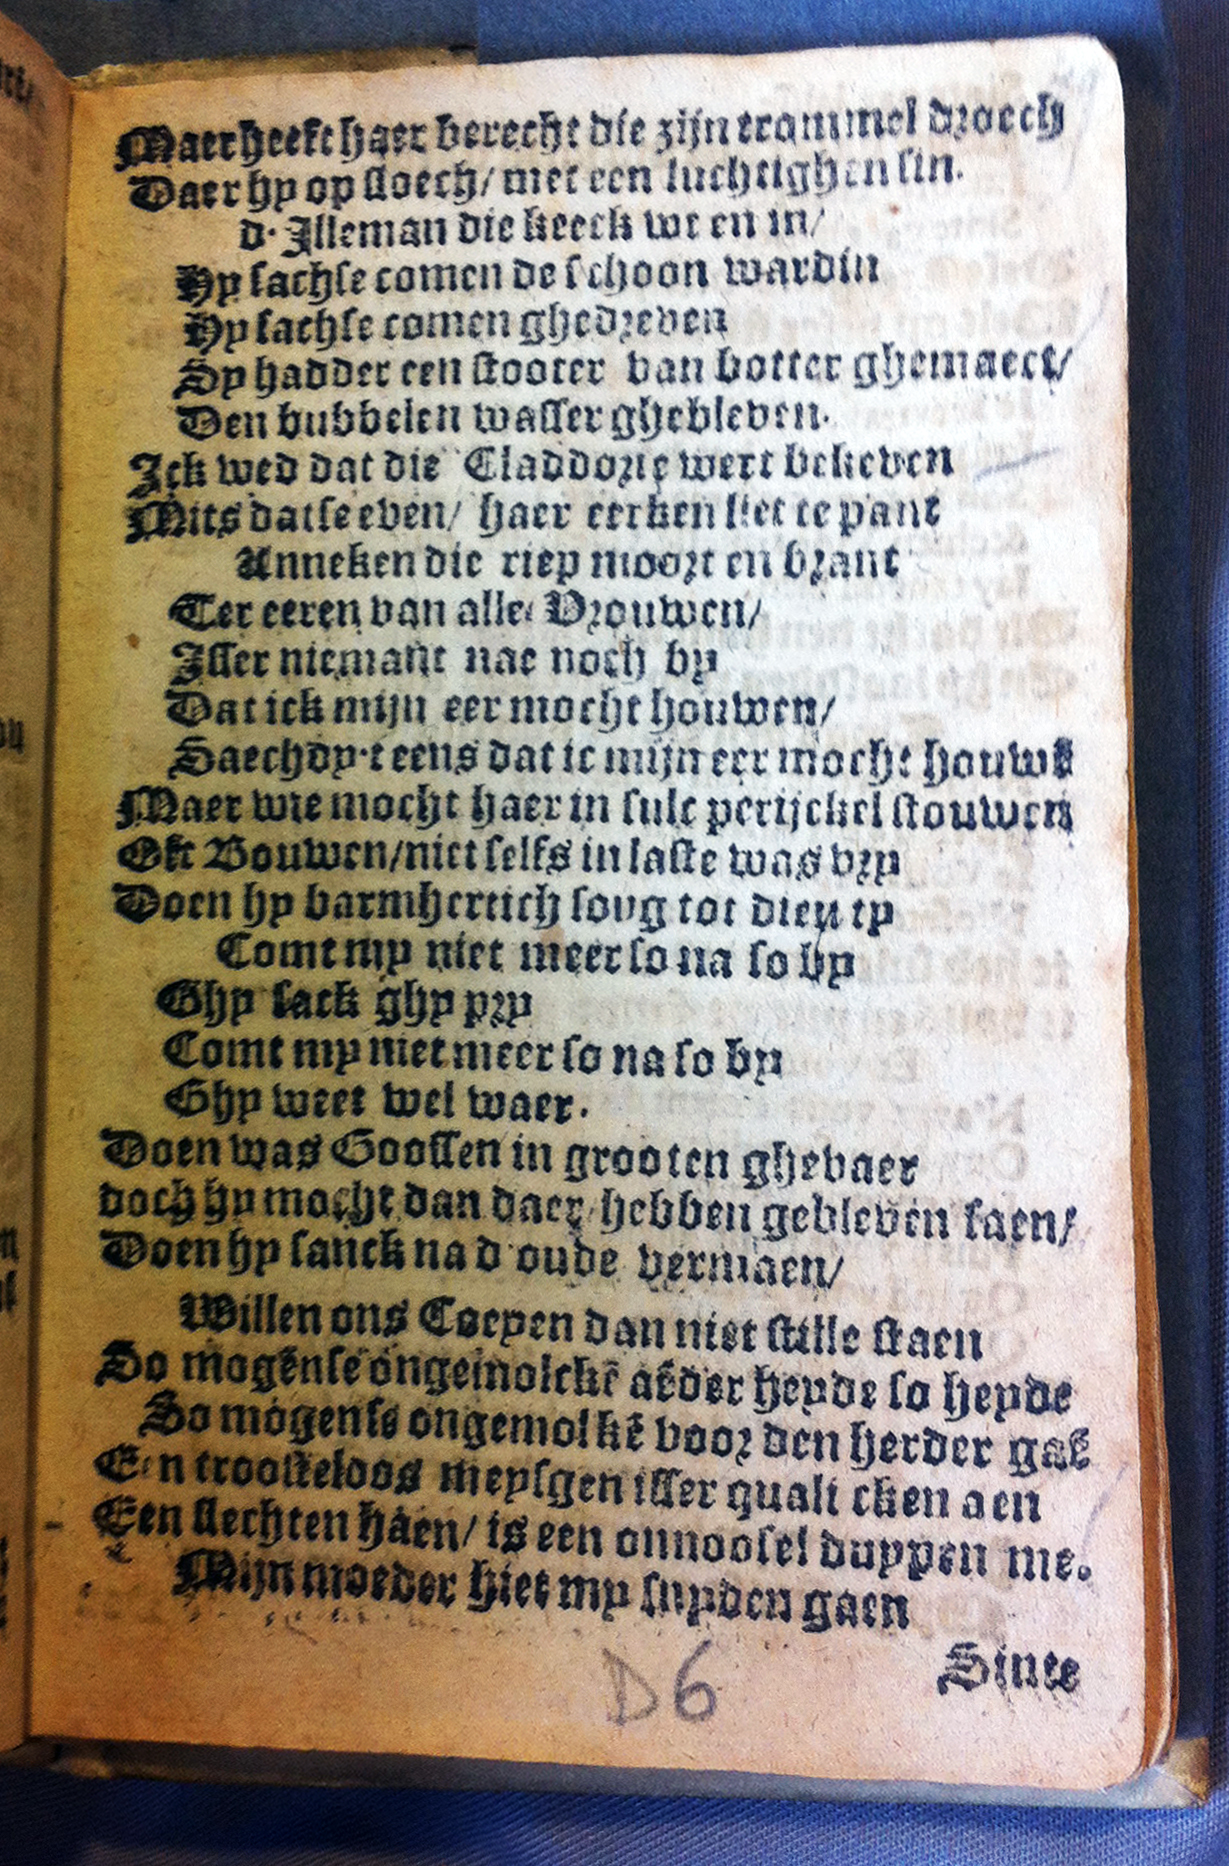 Maer heeft haer berecht die zijn trommel droech
Daer hy op sloech/ met een luchtighen sin.
d. Illeman die keeck wt en in/
Hy sachse comen de schoon wardin
Hy sachse comen ghedreven
Sy hadder een stooter van botter ghemaect/
Den hubbelen wasser ghebleven.
Ick wed dat die Claddorie wert bekeven
Mits datse even/ haer eerken liet te pant
Anneken die riep moort en brant
Ter eeren van alle Vrouwen/
Isser niemant nae noch by
Dat ick mijn eer mocht houwen/
Saechdy.t eens dat ic mijn eer mocht houwē
Maer wie mocht haer in sulc perijckel stouwen
Oft Bouwen/niet selfs in laste was vry
Doen hy barmhertich song tot dien ty
Comt my niet meer so na so by
Ghy sack ghy pry
Comt my niet meer so na so by
Ghy weet wel waer.
Doen was Goossen in grooten ghevaer
doch hy mocht dan daer hebben gebleven saen/
Doen hy sanck na d oude vermaen/
Willen ons Coeyen dan niet stille staen
So mogēnse ongemolckē aēder heyde so heyde
So mogense ongemolkē voor den herder gaē
Een troosteloos meysgen isser quali cken aen
Een slechten haen/ is een onnoosel duyven me.
Mijn moeder hiet my snyden gaen
Sinte
D6